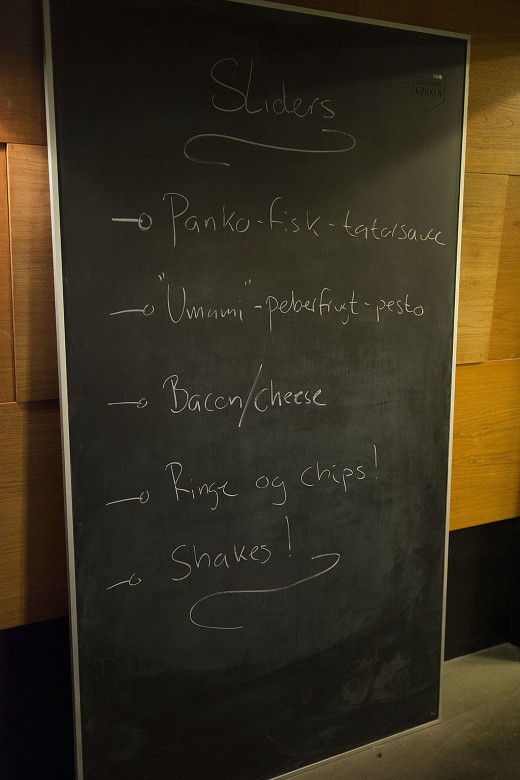 Sliders
KØKKEN
Panko-fisk-tatarsauce
"Umami"-peberfrugt-pesto
Bacon/cheese
Ringe og chips!
Shakes!